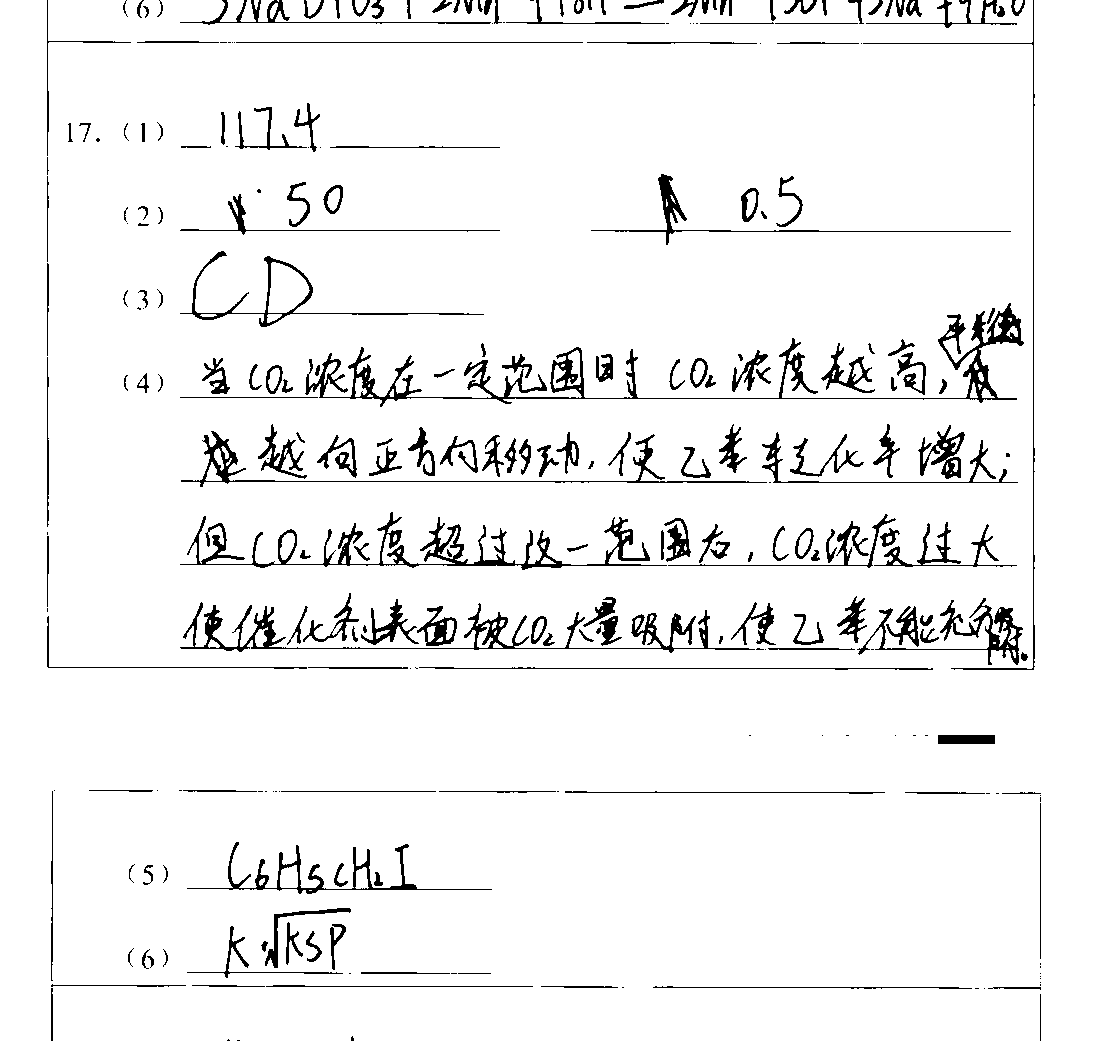 (6)
17. (1) 117.4
(2) 50 0.5
(3) CD
(4) 当CO₂浓度在一定范围时 CO₂浓度越高,平衡
越向正方向移动,使乙苯转化率增大;
但CO₂浓度超过改一范围后,CO₂浓度过大
使催化剂表面被CO₂大量吸附,使乙苯不能充分
(5) C₆H₅CH₂I
(6) K·√KSP